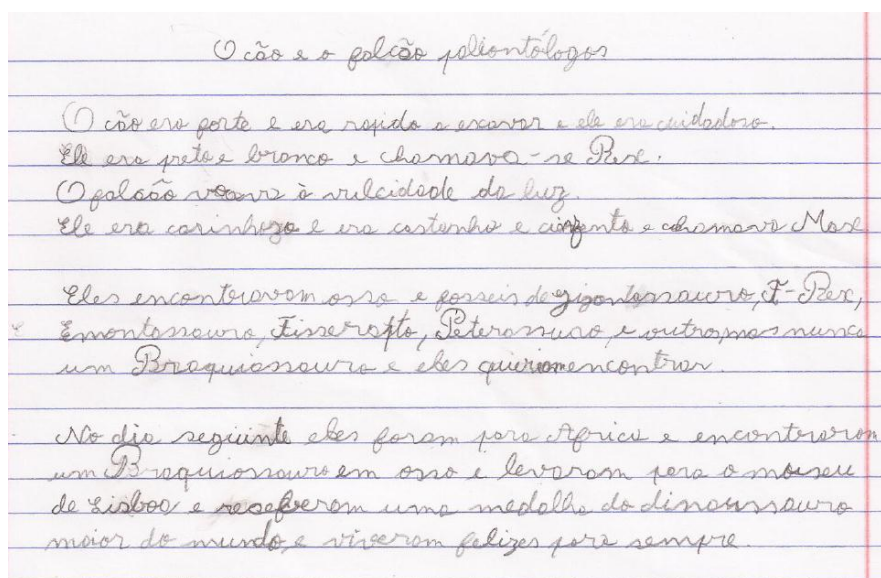 O cão e o falcão paliontólogos
O cão era forte e era rapido a excavar e ele era cuidadoso.
Ele era preto e branco e chamava-se Rex.
O falcão voava à vulcidade da luz.
Ele era carinhozo e era castanho e cinzento e chamava Max
Eles encontravam osso e fosseis de gigontassauro, T-Rex,
Emontassauro, Peterassuro, e outro, mas nunca
um Braquiassauro e eles queriam encontrar.
No dia seguinte eles foram para Africa e encontraram
um Braquiossauro em osso e levaram para o mouseu
de Lisboa e reseberam uma medalha do dinoussauro
maior do mundo, e viveram felizes para sempre.